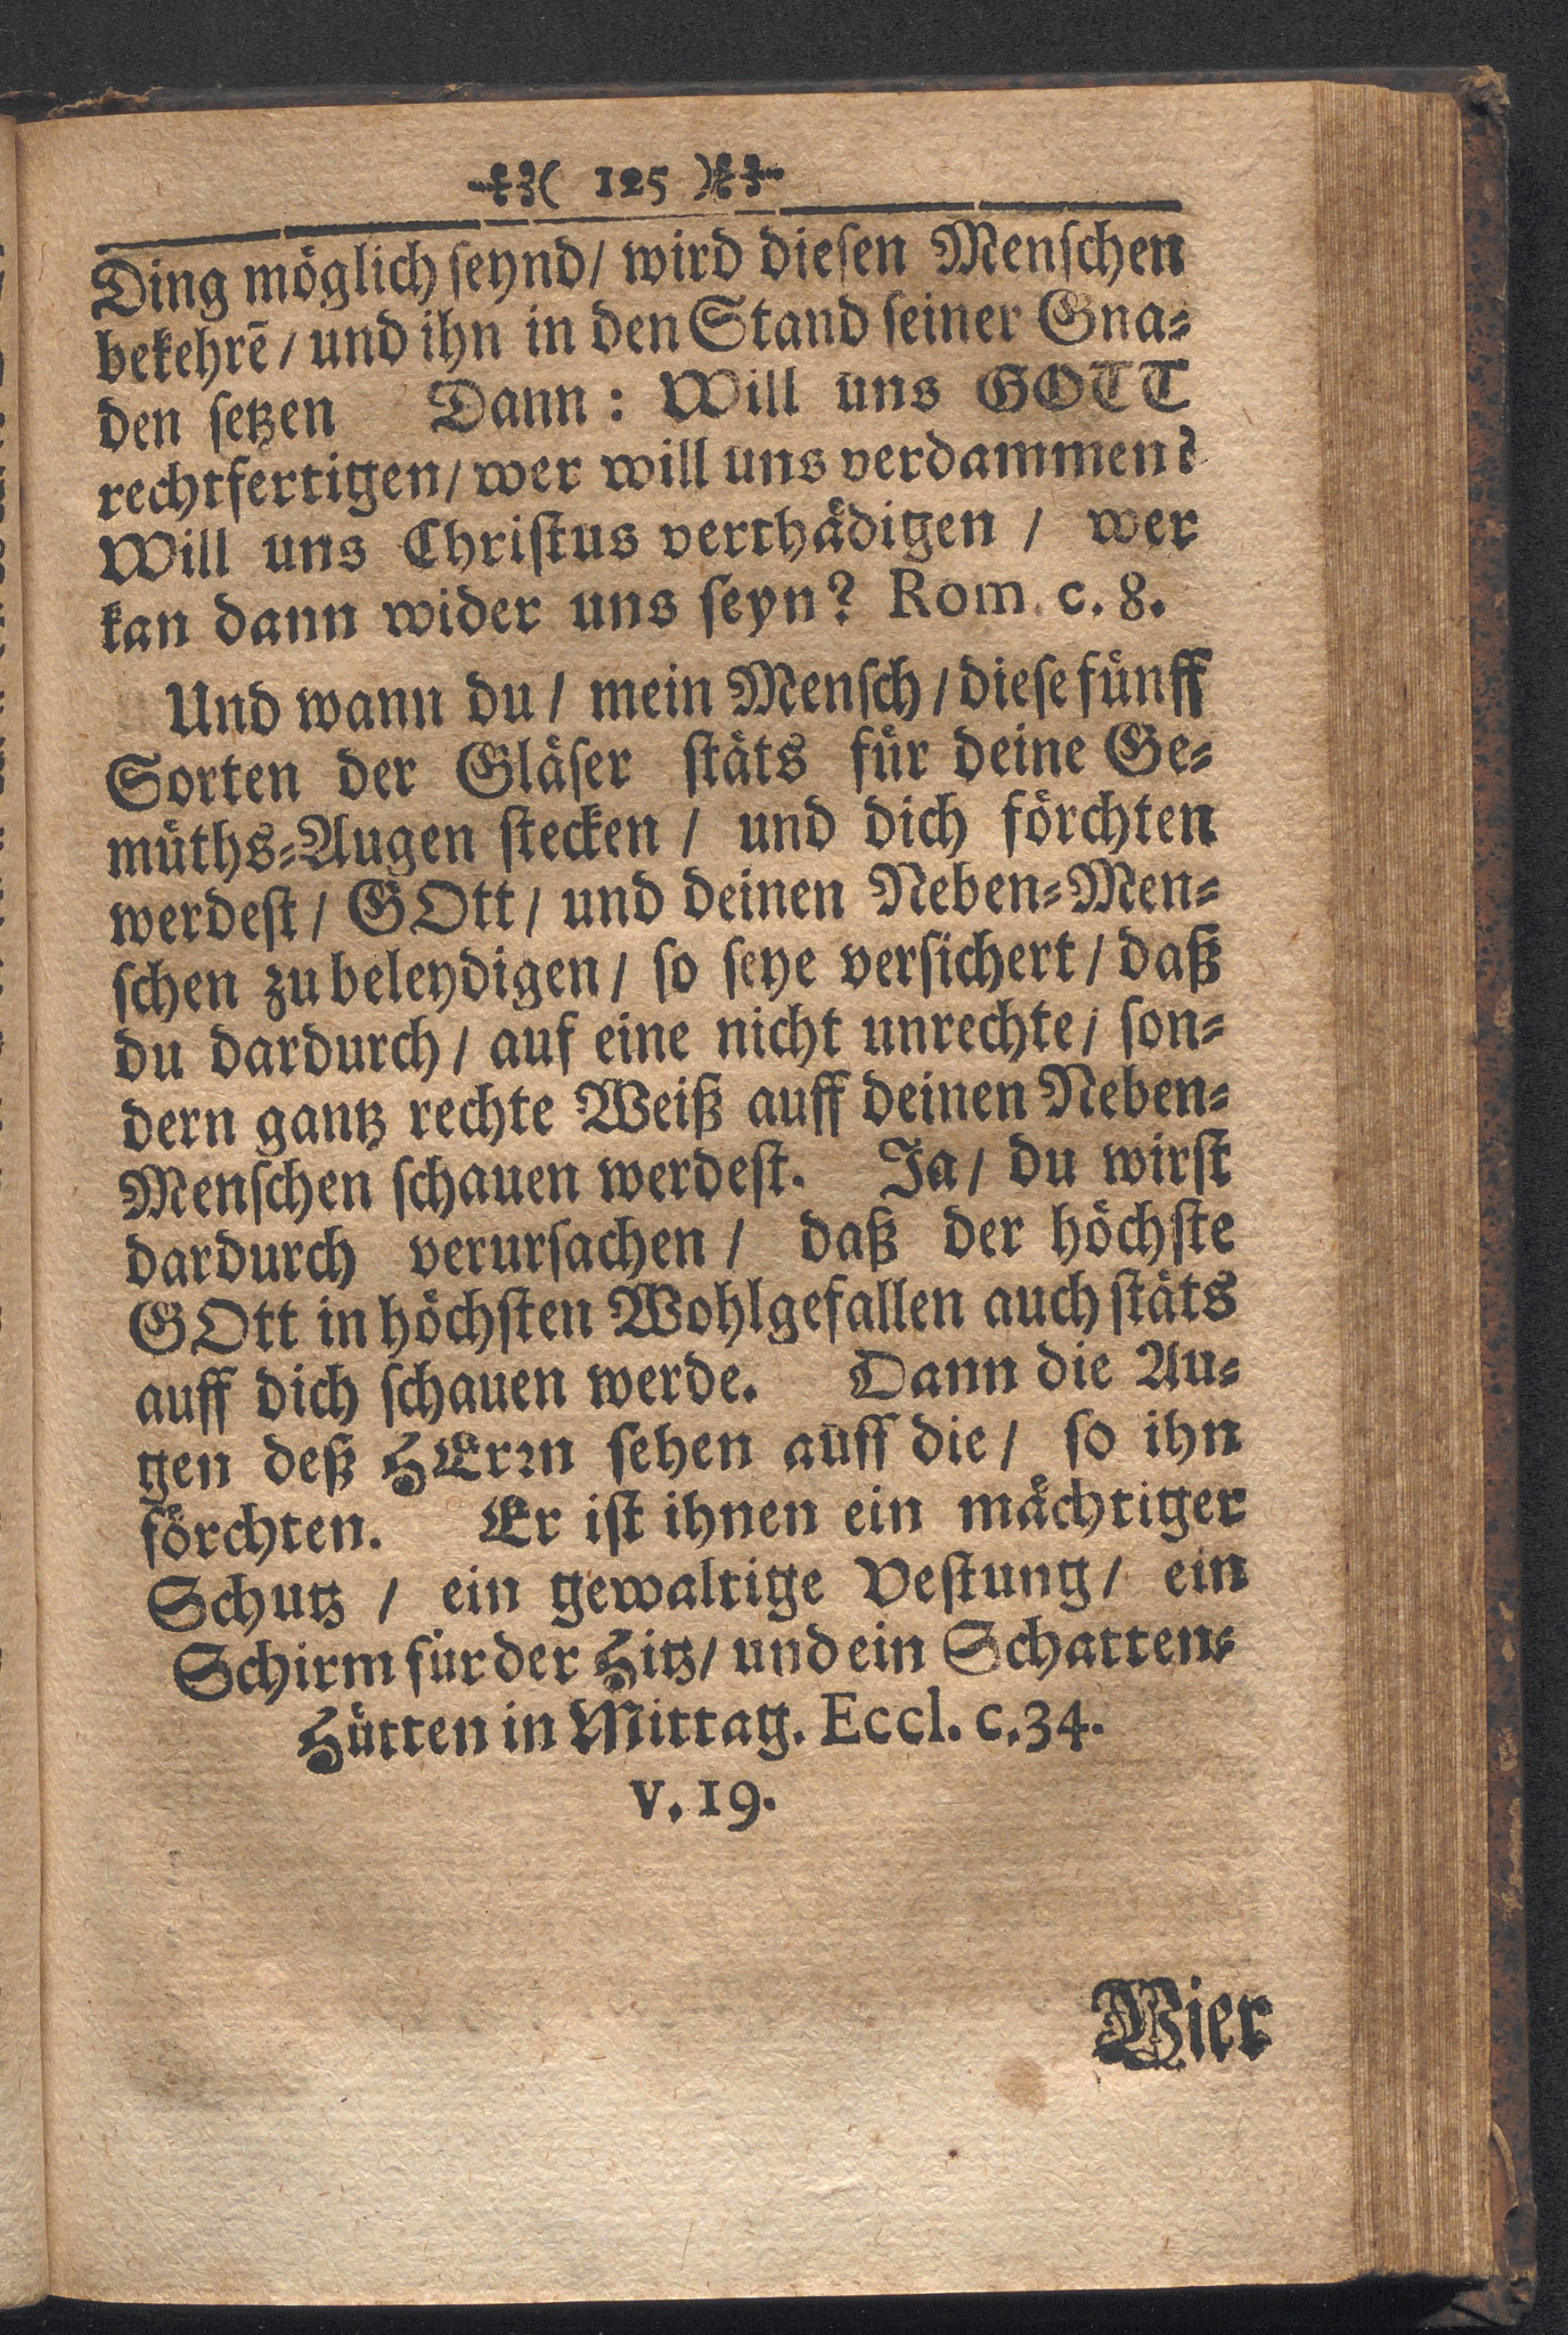 ( 125 )
Ding möglich ſeynd/ wird dieſen Menſchen
bekehrē/ und ihn in den Stand ſeiner Gna⸗
den ſetzen Dann: Will uns GOTT
rechtfertigen/ wer will uns verdammen?
Will uns Chriſtus verthädigen / wer
kan dann wider uns ſeyn? Rom. c. 8.
Und wann du/ mein Menſch/ dieſe fünff
Sorten der Gläſer ſtäts für deine Ge⸗
müths⸗Augen ſtecken / und dich förchten
werdeſt/ GOtt/ und deinen Neben⸗Men⸗
ſchen zu beleydigen/ ſo ſeye verſichert/ daß
du dardurch/ auf eine nicht unrechte/ ſon⸗
dern gantz rechte Weiß auff deinen Neben⸗
Menſchen ſchauen werdeſt. Ja/ du wirſt
dardurch verurſachen / daß der höchſte
GOtt in höchſten Wohlgefallen auch ſtäts
auff dich ſchauen werde. Dann die Au⸗
gen deß HErꝛn ſehen auff die/ ſo ihn
förchten. Er iſt ihnen ein mächtiger
Schutz / ein gewaltige Veſtung/ ein
Schirm für der Hitz/ und ein Schatten⸗
Hütten in Mittag. Eccl. c. 34.
v. 19.
Vier